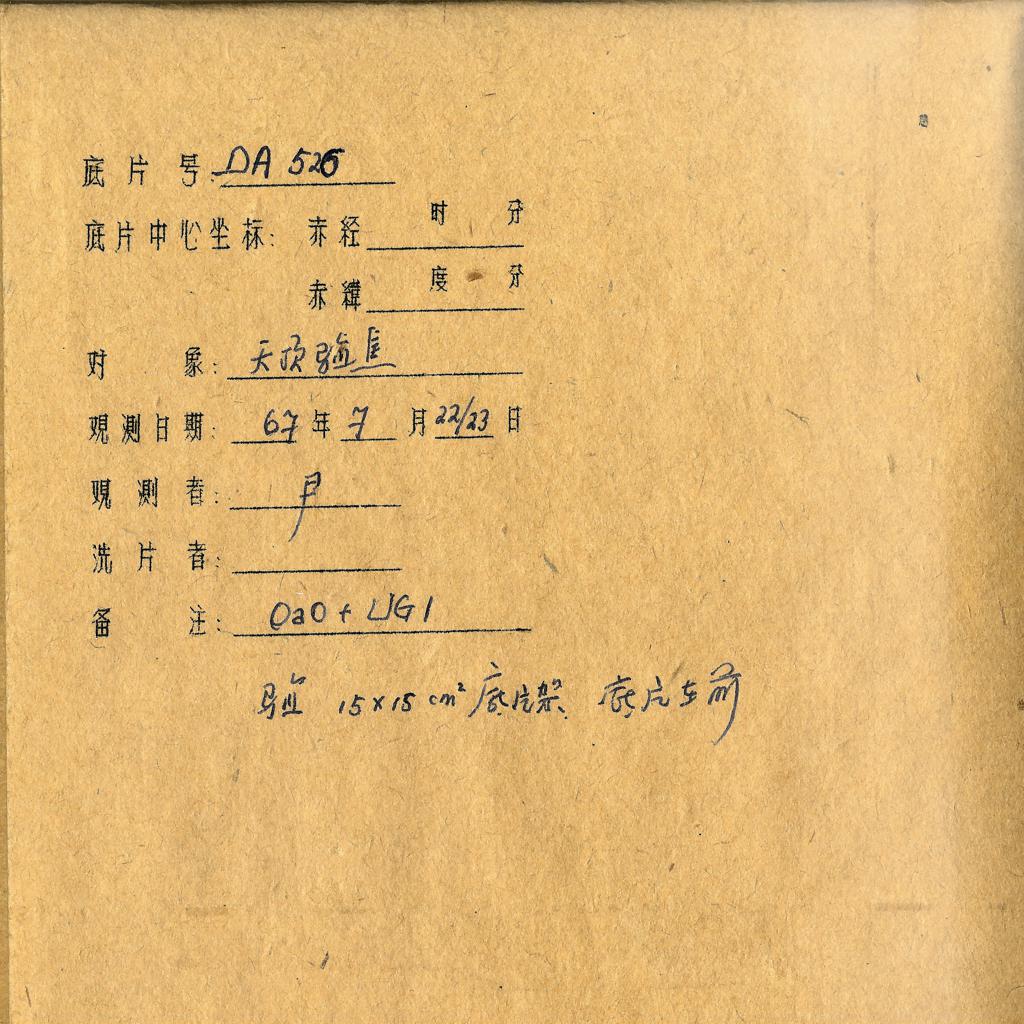 底片号: DA 526
底片中心坐标: 赤经 时 分
赤緯 度 分
对象: 天顶验焦
观测日期: 67年7月22/23日
观测者: 尹
洗片者:
备注: OaO + UG1
验 15×15 cm² 底片架 底片在前